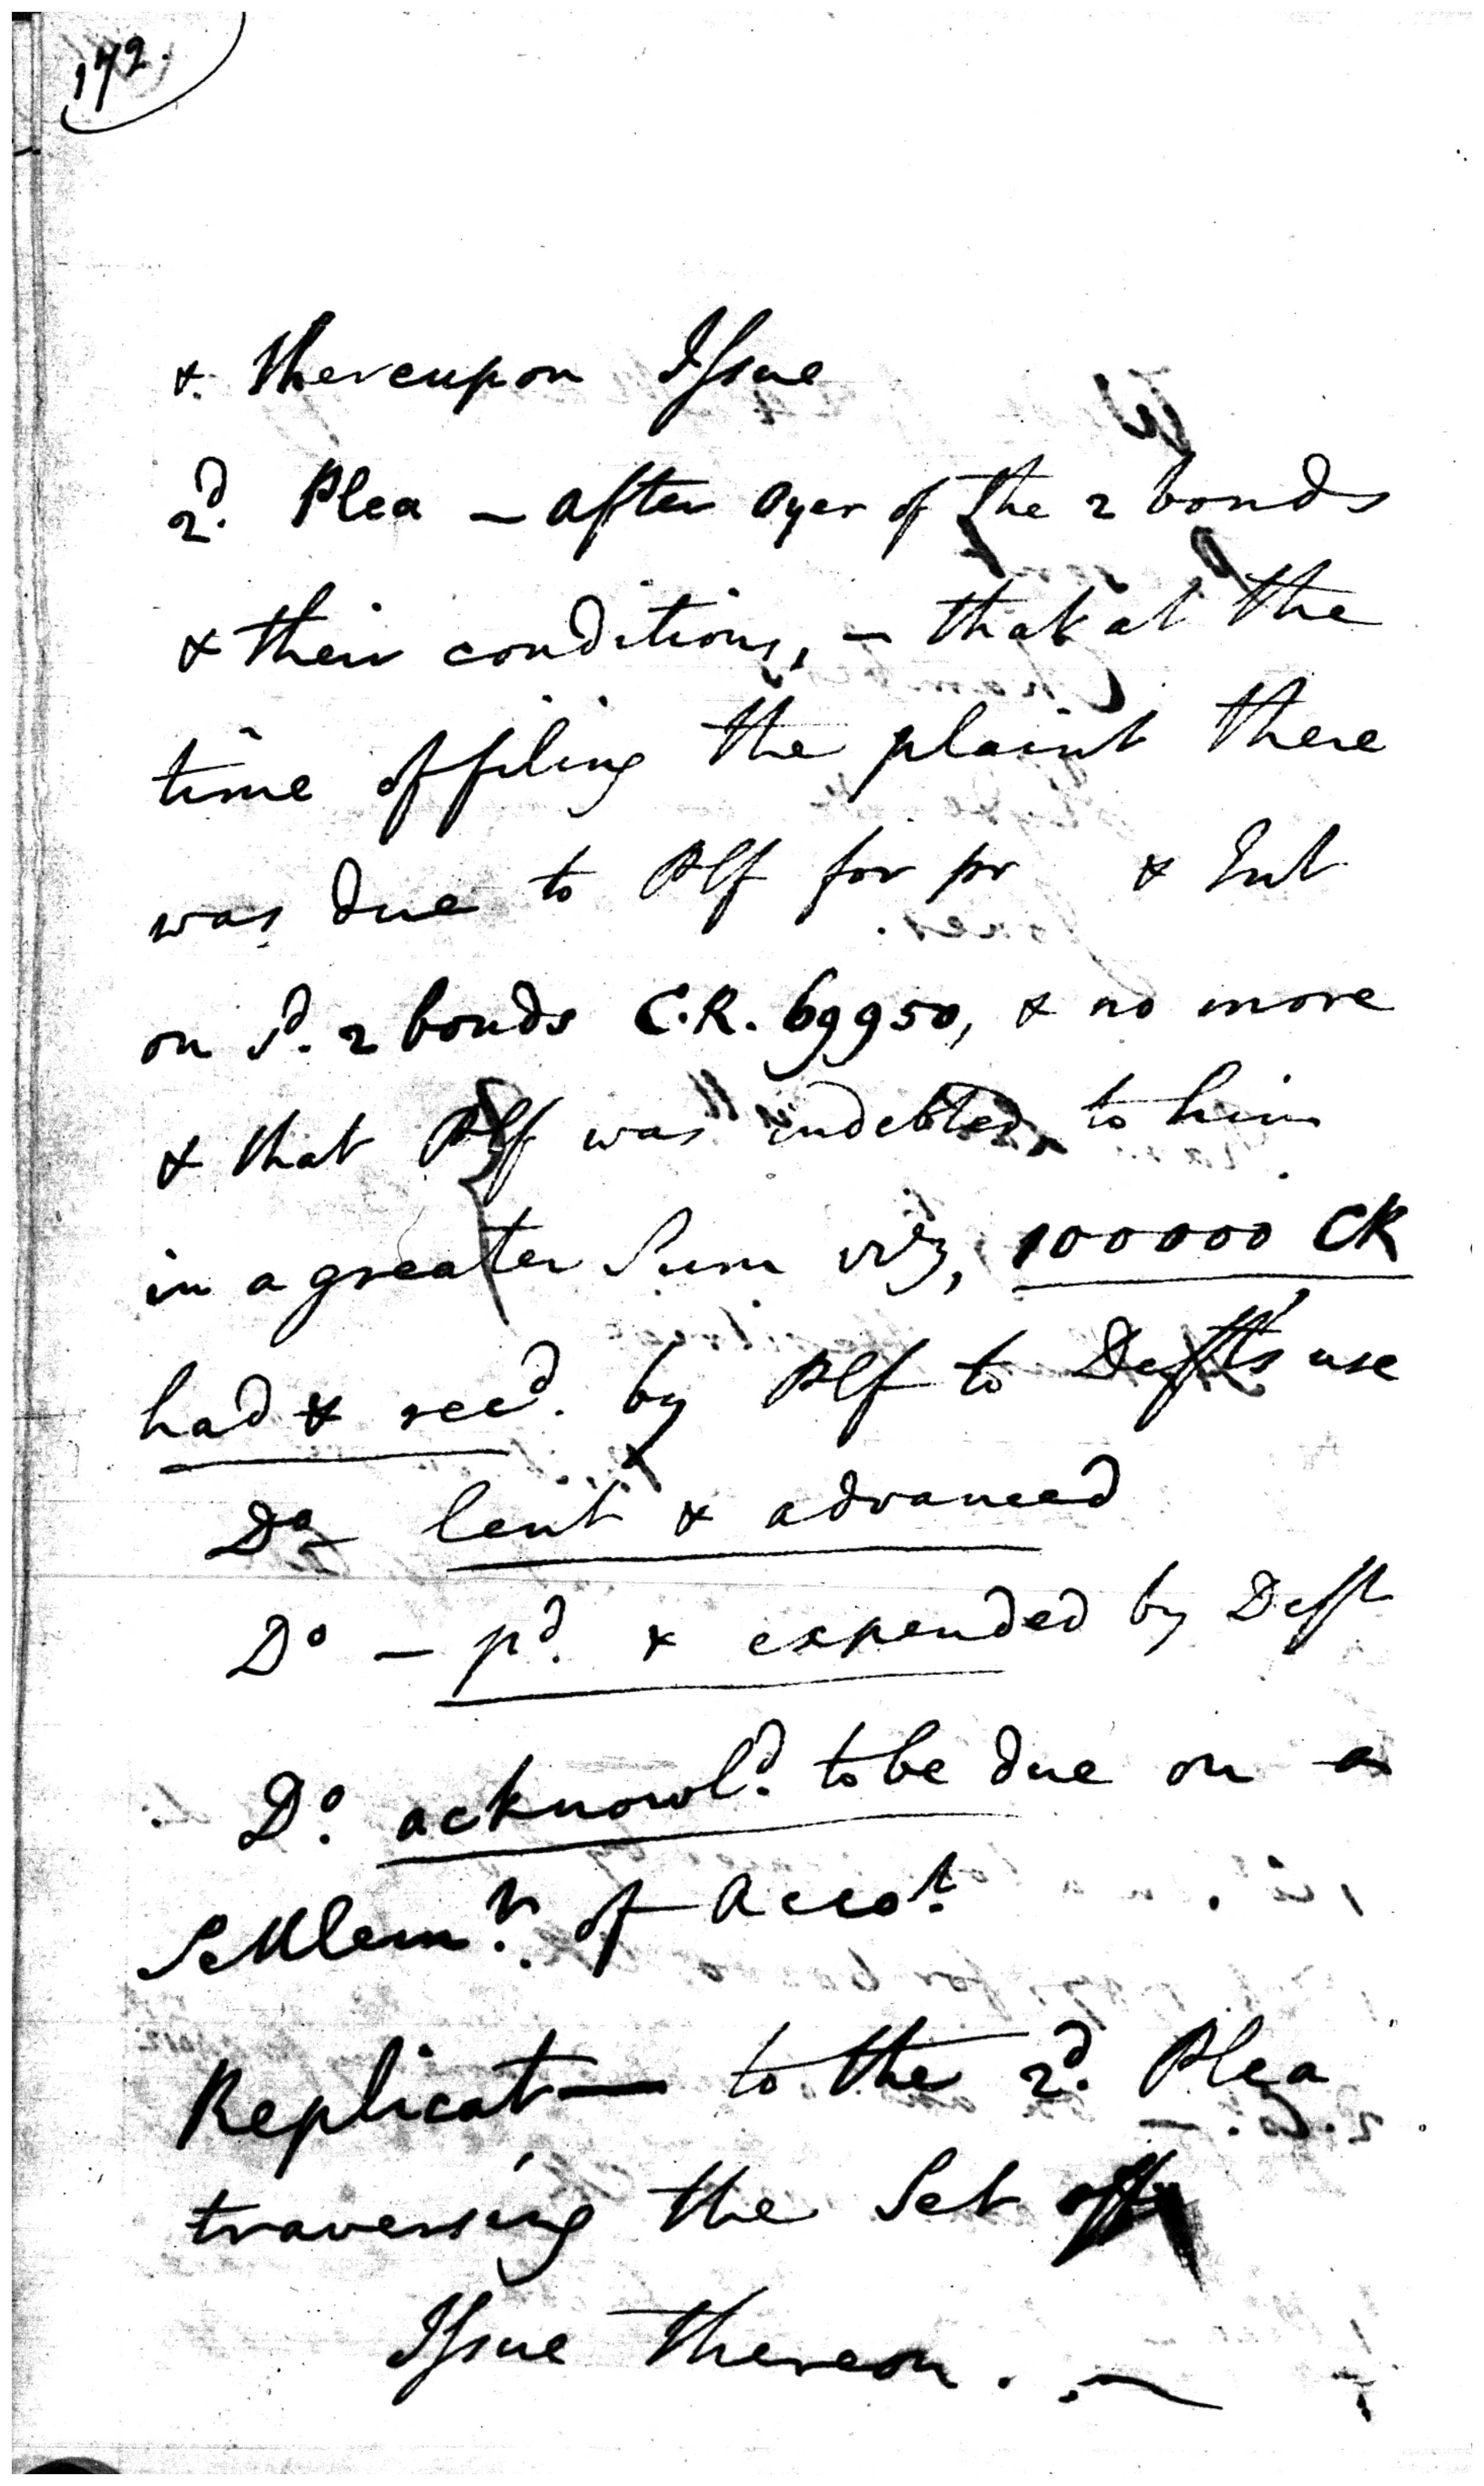 172.
& thereupon Issue
2d. Plea - after Oyer of the 2 bonds
& their conditions, - that at the
time of filing the plaint there
was due to Plf for pr & Int
on Sd. 2 bonds C.R. 69950, & no more
& that Plf was indebted to him
in a greater Sum viz, 100000 CR
had & recd. by Plf to Defts use
Do lent & advanced
Do - pd. & expended by Deft
Do. acknowld. to be due on a
Settlemt. of Accot.
Replicat— to the 2d. Plea
traversing the Set off
Issue thereon. -